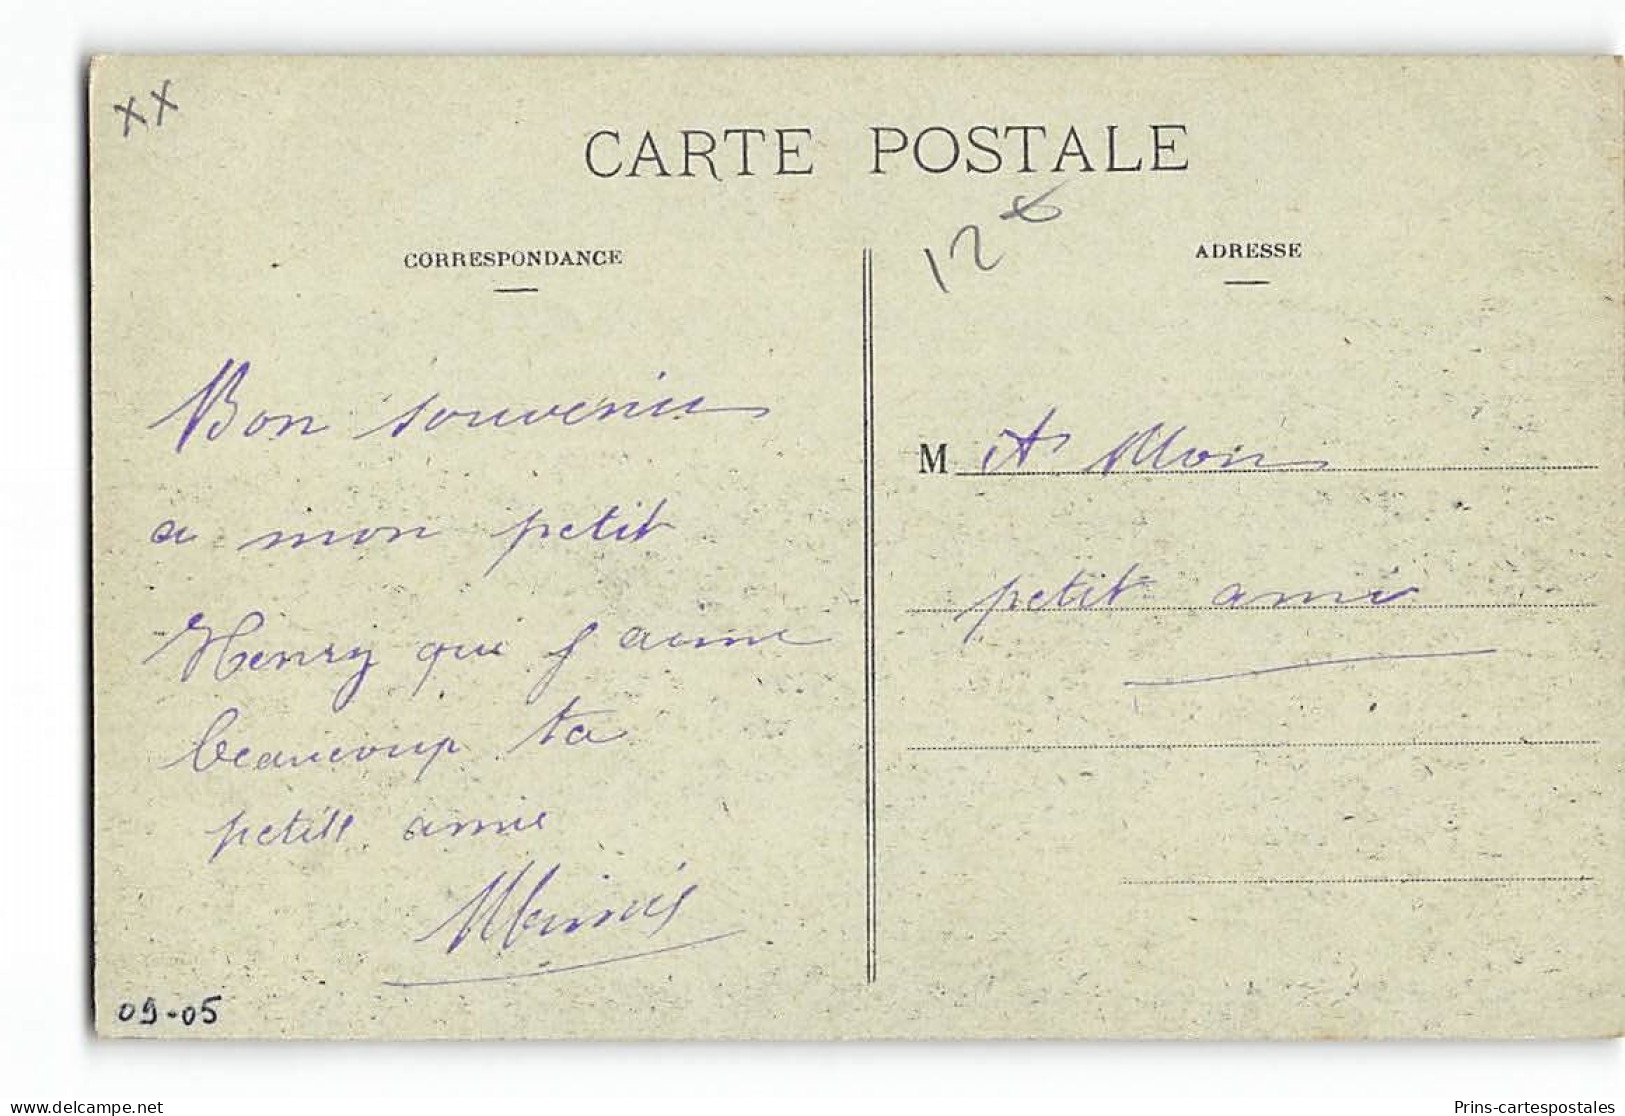 XX
CARTE POSTALE
12
CORRESPONDANCE
ADRESSE
Bon souvenir
a mon petit
Henry que j'aime
beaucoup ta
petite amie
M A Mon
petit ami
09-05
delcampe.net
Prins-cartespostales